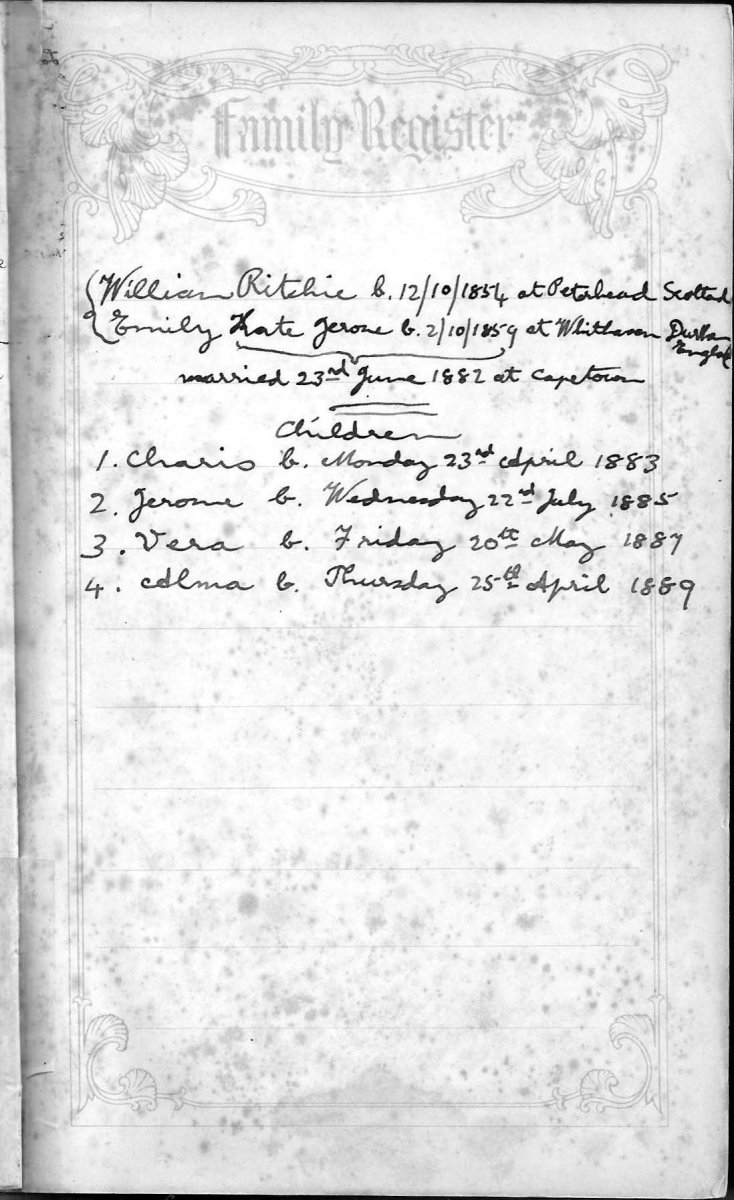 Family Register
William Ritchie b. 12/10/1854 at Peterhead Scotland
Emily Kate Jerome b. 2/10/1859 at Whithaven Durham
England
married 23rd June 1882 at Capetown
Children
1. Charis b. Monday 23rd April 1883
2. Jerome b. Wednesday 22nd July 1885
3. Vera b. Friday 20th May 1887
4. Alma b. Thursday 25th April 1889